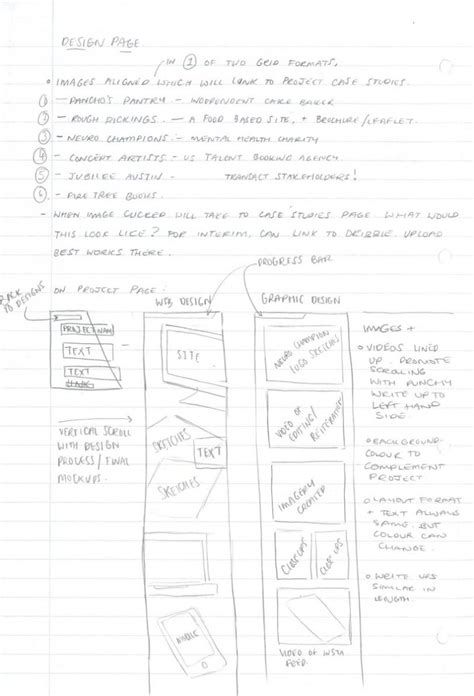 DESIGN PAGE
IN 1 OF TWO GRID FORMATS,
IMAGES ALIGNED WHICH WILL LINK TO PROJECT CASE STUDIES.
1 - PANCHO'S PANTRY - INDEPENDENT CAKE BAKER
2 - ROUGH PICKINGS - A FOOD BASED SITE, + BROCHURE/LEAFLET.
3 - NEURO CHAMPIONS - MENTAL HEALTH CHARITY
4 - CONCEPT ARTISTS - US TALENT BOOKING AGENCY
5 - JUBILEE AUSTIN - TRANSACT STAKEHOLDERS!
6 - TREE BOOKS.
- WHEN IMAGE CLICKED WILL TAKE TO CASE STUDIES PAGE WHAT WOULD
THIS LOOK LIKE? FOR INTERIM, CAN LINK TO DRIBBLE. UPLOAD
BEST WORKS THERE.
PROGRESS BAR
ON PROJECT PAGE:
BACK TO DESIGNS
WEB DESIGN
GRAPHIC DESIGN
PROJECT NAME
TEXT
TEXT
LINK
SITE
NEURO CHAMPION
LOGO SKETCHES
IMAGES +
VIDEOS LINED
UP. PROMOTE
SCROLLING
WITH PUNCHY
WRITE UP TO
LEFT HAND
SIDE
VERTICAL SCROLL
WITH DESIGN
PROCESS / FINAL
MOCKUPS.
SKETCHES
TEXT
SKETCHES
VIDEO OF
EDITING/
BACKGROUND
COLOUR TO
COMPLEMENT
PROJECT
IMAGERY
CREATED
LAYOUT FORMAT
+ TEXT ALWAYS
SAME. BUT
COLOUR CAN
CHANGE.
CLOSE UPS
CLOSE UPS
WRITE UPS
SIMILAR IN
LENGTH.
KINDLE
VIDEO OF INSTA
FEED